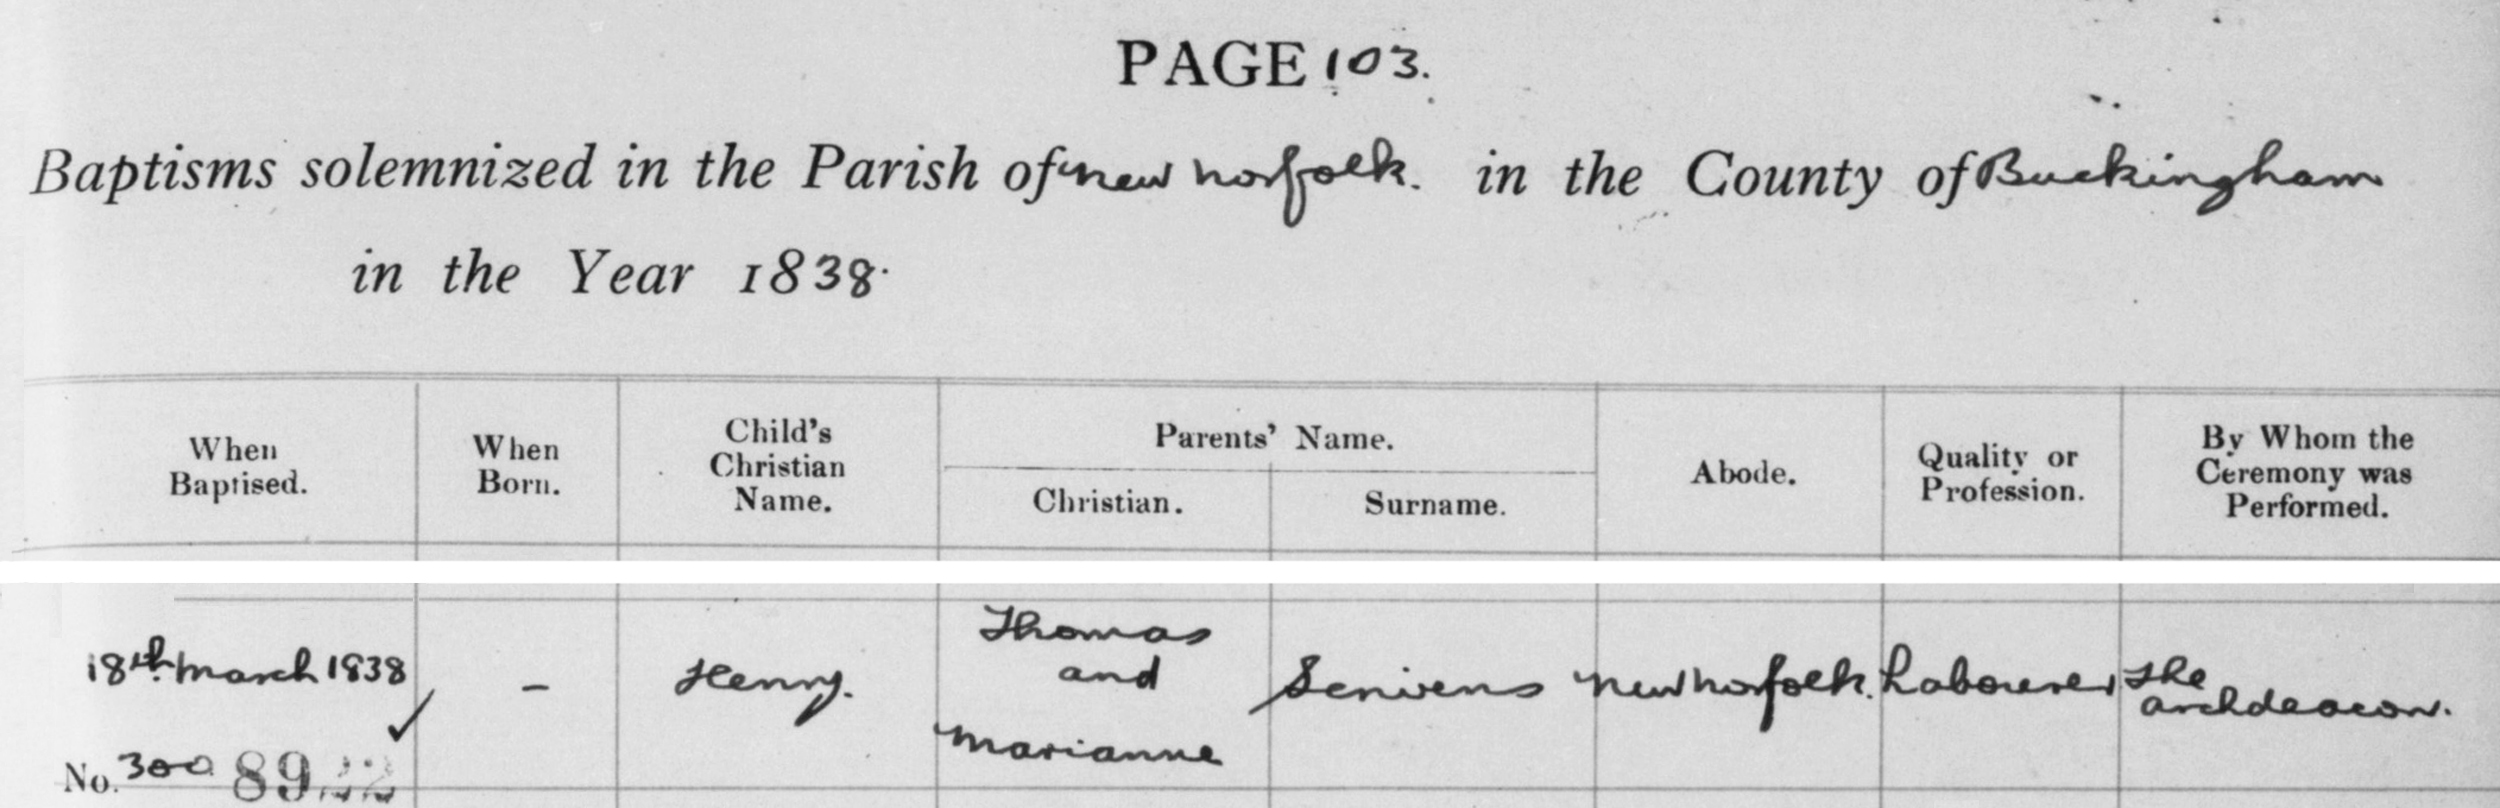 PAGE 103.
Baptisms solemnized in the Parish of new norfolk. in the County of Buckingham
in the Year 1838.
When Baptised.
When Born.
Child's Christian Name.
Parents' Name.
Christian.
Surname.
Abode.
Quality or Profession.
By Whom the Ceremony was Performed.
18th march 1838
–
Henry.
Thomas
and
marianne
Scrivens
new norfolk.
Labourer
The
archdeacon.
No. 300 8922